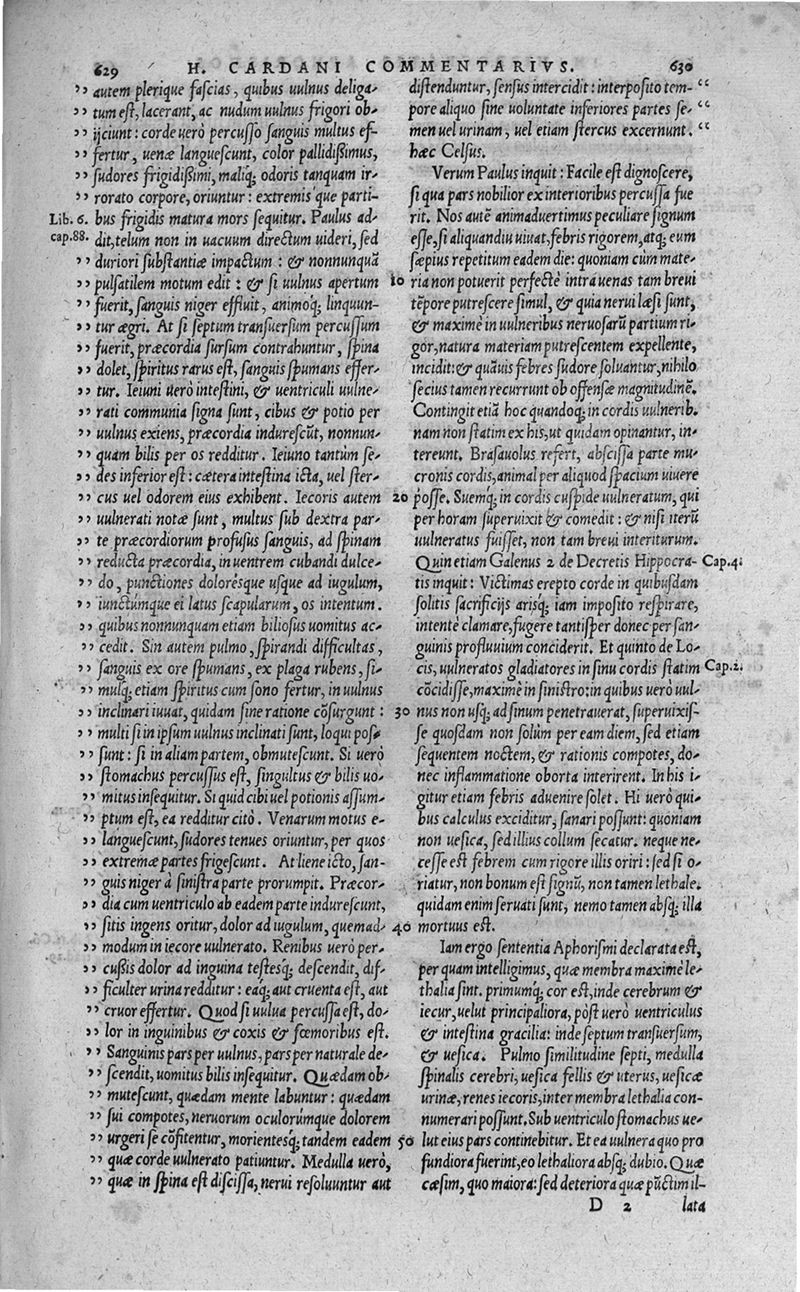 629 H. CARDANI COMMENTARIVS. 630
” autem plerique fascias, quibus uulnus deliga-
” tum est, lacerant, ac nudum uulnus frigori ob-
” ijciunt: corde uerò percusso sanguis multus ef-
” fertur, uenæ languescunt, color pallidißimus,
” sudores frigidißimi, maliq; odoris tanquam ir-
” rorato corpore, oriuntur: extremis´que parti-
Lib. 6. bus frigidis matura mors sequitur. Paulus ad-
cap.88. dit, telum non in uacuum directum uideri, sed
” duriori substantiæ impactum: & nonnunquā
” pulsatilem motum edit: & si uulnus apertum
” fuerit, sanguis niger effluit, animoq́; linquun-
” tur ægri. At si septum transuersum percussum
” fuerit, præcordia sursum contrahuntur, spina
” dolet, spiritus rarus est, sanguis spumans effer-
” tur. Ieiuni uerò intestini, & uentriculi uulne-
” rati communia signa sunt, cibus & potio per
” uulnus exiens, præcordia indurescūt, nonnun-
” quam bilis per os redditur. Ieiuno tantùm se-
” des inferior est: cætera intestina icta, uel ster-
” cus uel odorem eius exhibent. Iecoris autem
” uulnerati notæ sunt, multus sub dextra par-
” te præcordiorum profusus sanguis, ad spinam
” reducta præcordia, in uentrem cubandi dulce-
” do, punctiones dolorésque usque ad iugulum,
” iunctúmque ei latus scapularum, os intentum.
” quibus nonnunquam etiam biliosus uomitus ac-
” cedit. Sin autem pulmo, spirandi difficultas,
” sanguis ex ore spumans, ex plaga rubens, si-
” mulq; etiam spiritus cum sono fertur, in uulnus
” inclinari iuuat, quidam sine ratione cōsurgunt:
” multi si in ipsum uulnus inclinati sunt, loqui pos-
” sunt: si in aliam partem, obmutescunt. Si uerò
” stomachus percussus est, singultus & bilis uo-
” mitus insequitur. Si quid cibi uel potionis assum-
” ptum est, ea redditur citò. Venarum motus e-
” languescunt, sudores tenues oriuntur, per quos
” extremæ partes frigescunt. At liene icto, san-
” guis niger à sinistra parte prorumpit. Præcor-
” dia cum uentriculo ab eadem parte indurescunt,
” sitis ingens oritur, dolor ad iugulum, quemad-
” modum in iecore uulnerato. Renibus uerò per-
” cußis dolor ad inguina testesq́; descendit, dif-
” ficulter urina redditur: eaq́; aut cruenta est, aut
” cruor effertur. Quòd si uulua percussa est, do-
” lor in inguinibus & coxis & fœmoribus est.
” Sanguinis pars per uulnus, pars per naturale de-
” scendit, uomitus bilis insequitur. Quædam ob-
” mutescunt, quædam mente labuntur: quædam
” sui compotes, neruorum oculorúmque dolorem
” urgeri se cōfitentur, morientesq́; tandem eadem
” quæ corde uulnerato patiuntur. Medulla uerò,
” quæ in spina est discissa, nerui resoluuntur aut
distenduntur, sensus intercidit: interposito tem- “
pore aliquo sine uoluntate inferiores partes se- “
men uel urinam, uel etiam stercus excernunt. “
hæc Celsus.
Verum Paulus inquit: Facile est dignoscere,
si qua pars nobilior ex interioribus percussa fue
rit. Nos autē animaduertimus peculiare signum
esse, si aliquandiu uiuat, febris rigorem, atq; eum
sæpius repetitum eadem die: quoniam cùm mate-
10 ria non potuerit perfectè intra uenas tam breui
tēpore putrescere simul, & quia nerui læsi sunt,
& maximè in uulneribus neruosarū partium ri-
gor, natura materiam putrescentem expellente,
incidit: & quāuis febres sudore soluantur, nihilo
secius tamen recurrunt ob offensæ magnitudinē.
Contingit etiā hoc quandoq; in cordis uulnerib.
nam non statim ex his, ut quidam opinantur, in-
tereunt. Brasauolus refert, abscissa parte mu-
cronis cordis, animal per aliquod spacium uiuere
20 posse. Suemq; in cordis cuspide uulneratum, qui
per horam superuixit & comedit: & nisi iterū
uulneratus fuisset, non tam breui interiturum.
Quin etiam Galenus 2 de Decretis Hippocra- Cap.4.
tis inquit: Victimas erepto corde in quibusdam
solitis sacrificijs arisq́; iam imposito respirare,
intentè clamare, fugere tantisper donec per san-
guinis profluuium conciderit. Et quinto de Lo-
cis, uulneratos gladiatores in sinu cordis statim Cap.2.
cōcidisse, maximè in sinistro: in quibus uerò uul-
30 nus non usq; ad sinum penetrauerat, superuixis-
se quosdam non solùm per eam diem, sed etiam
sequentem noctem, & rationis compotes, do-
nec inflammatione oborta interirent. In his i-
gitur etiam febris aduenire solet. Hi uerò qui-
bus calculus exciditur, sanari possunt: quoniam
non uesica, sed illius collum secatur. neque ne-
cesse est febrem cum rigore illis oriri: sed si o-
riatur, non bonum est signū, non tamen lethale.
quidam enim seruati sunt, nemo tamen absq; illa
40 mortuus est.
Iam ergo sententia Aphorismi declarata est,
per quam intelligimus, quæ membra maximè le-
thalia sint. primumq́; cor est, inde cerebrum &
iecur, uelut principaliora, pòst uerò uentriculus
& intestina gracilia: inde septum transuersum,
& uesica. Pulmo similitudine septi, medulla
spinalis cerebri, uesica fellis & uterus, uesicæ
urinæ, renes iecoris, inter membra lethalia con-
numerari possunt. Sub uentriculo stomachus ue-
50 lut eius pars continebitur. Et ea uulnera quo pro
fundiora fuerint, eo lethaliora absq; dubio. Quæ
cæsim, quo maiora: sed deteriora quæ pūctim il-
D 2 lata